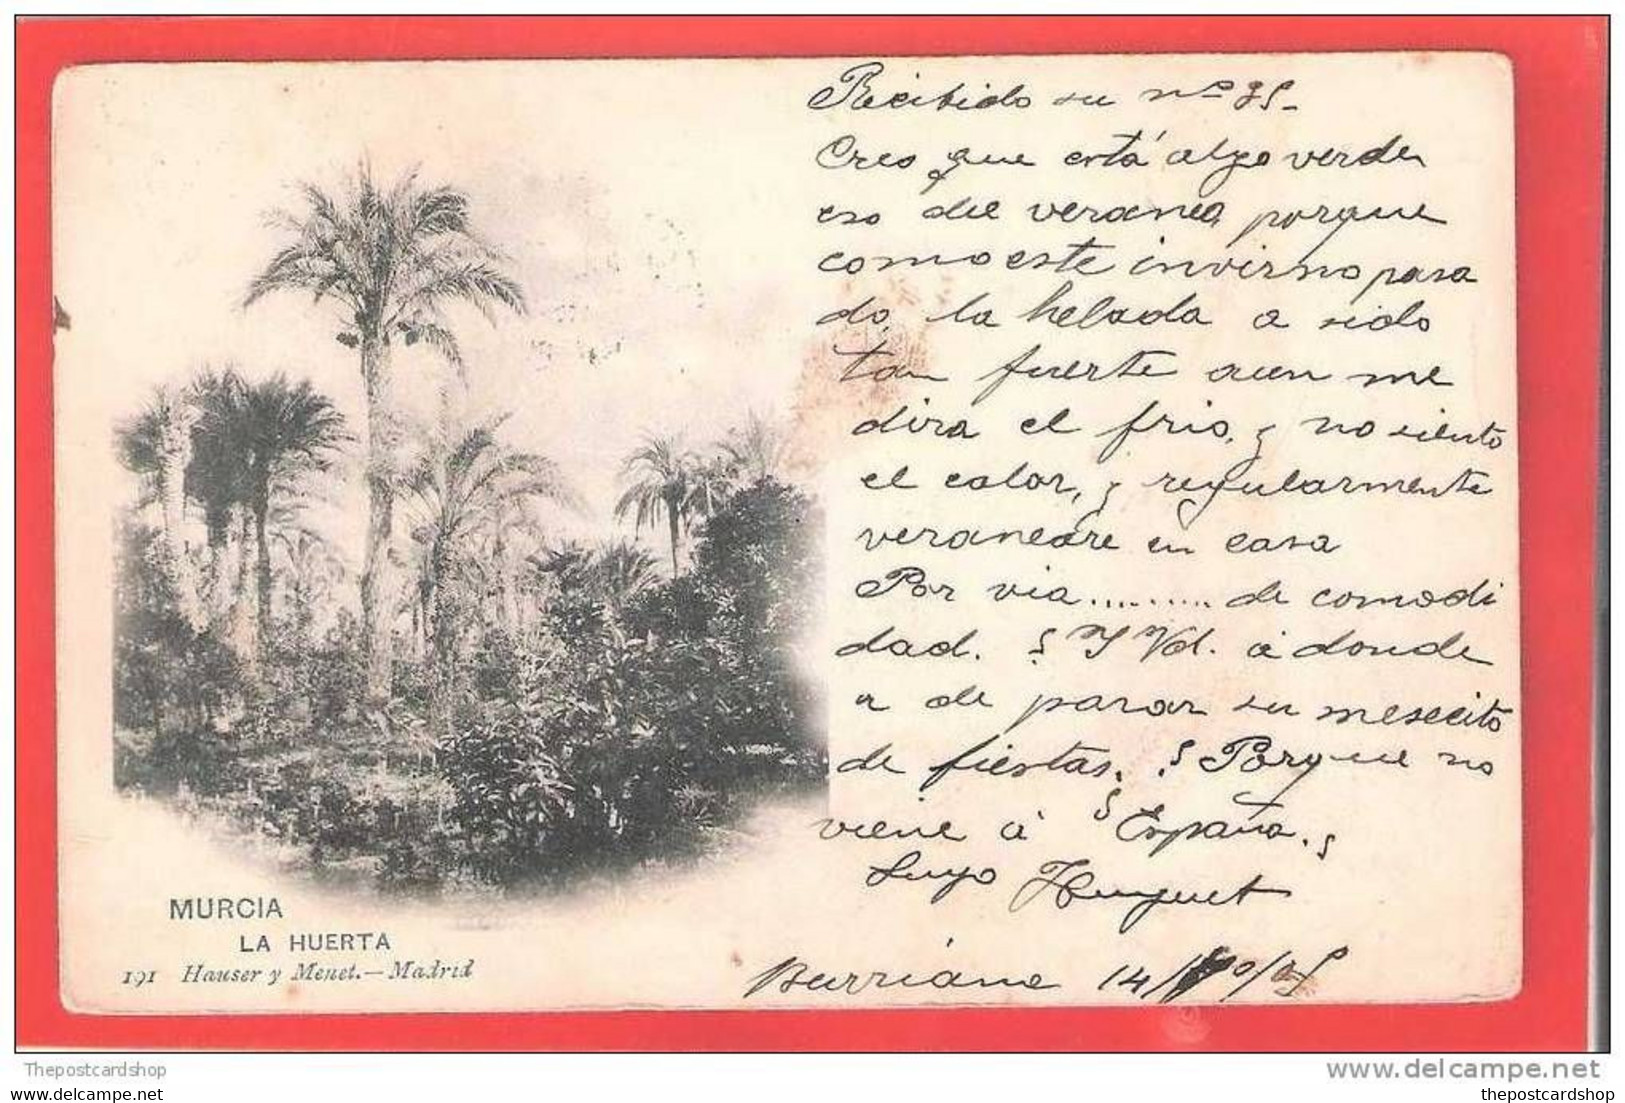 Recibido su nº 35-
Creo que está algo verde
eso del veraneo, porque
como este invierno pasa
do, la helada a sido
tan fuerte aun me
dira el frio, y no siento
el calor, y regularmente
veraneare en casa
Por via......... de comodi
dad. ¿Y Vd. á donde
a de pasar su mesecito
de fiestas. ¿Porque no
viene á España.?
Suyo Huguet
Burriana 14/
MURCIA
LA HUERTA
191 Hauser y Menet.—Madrid
Thepostcardshop
delcampe.net
thepostcardshop